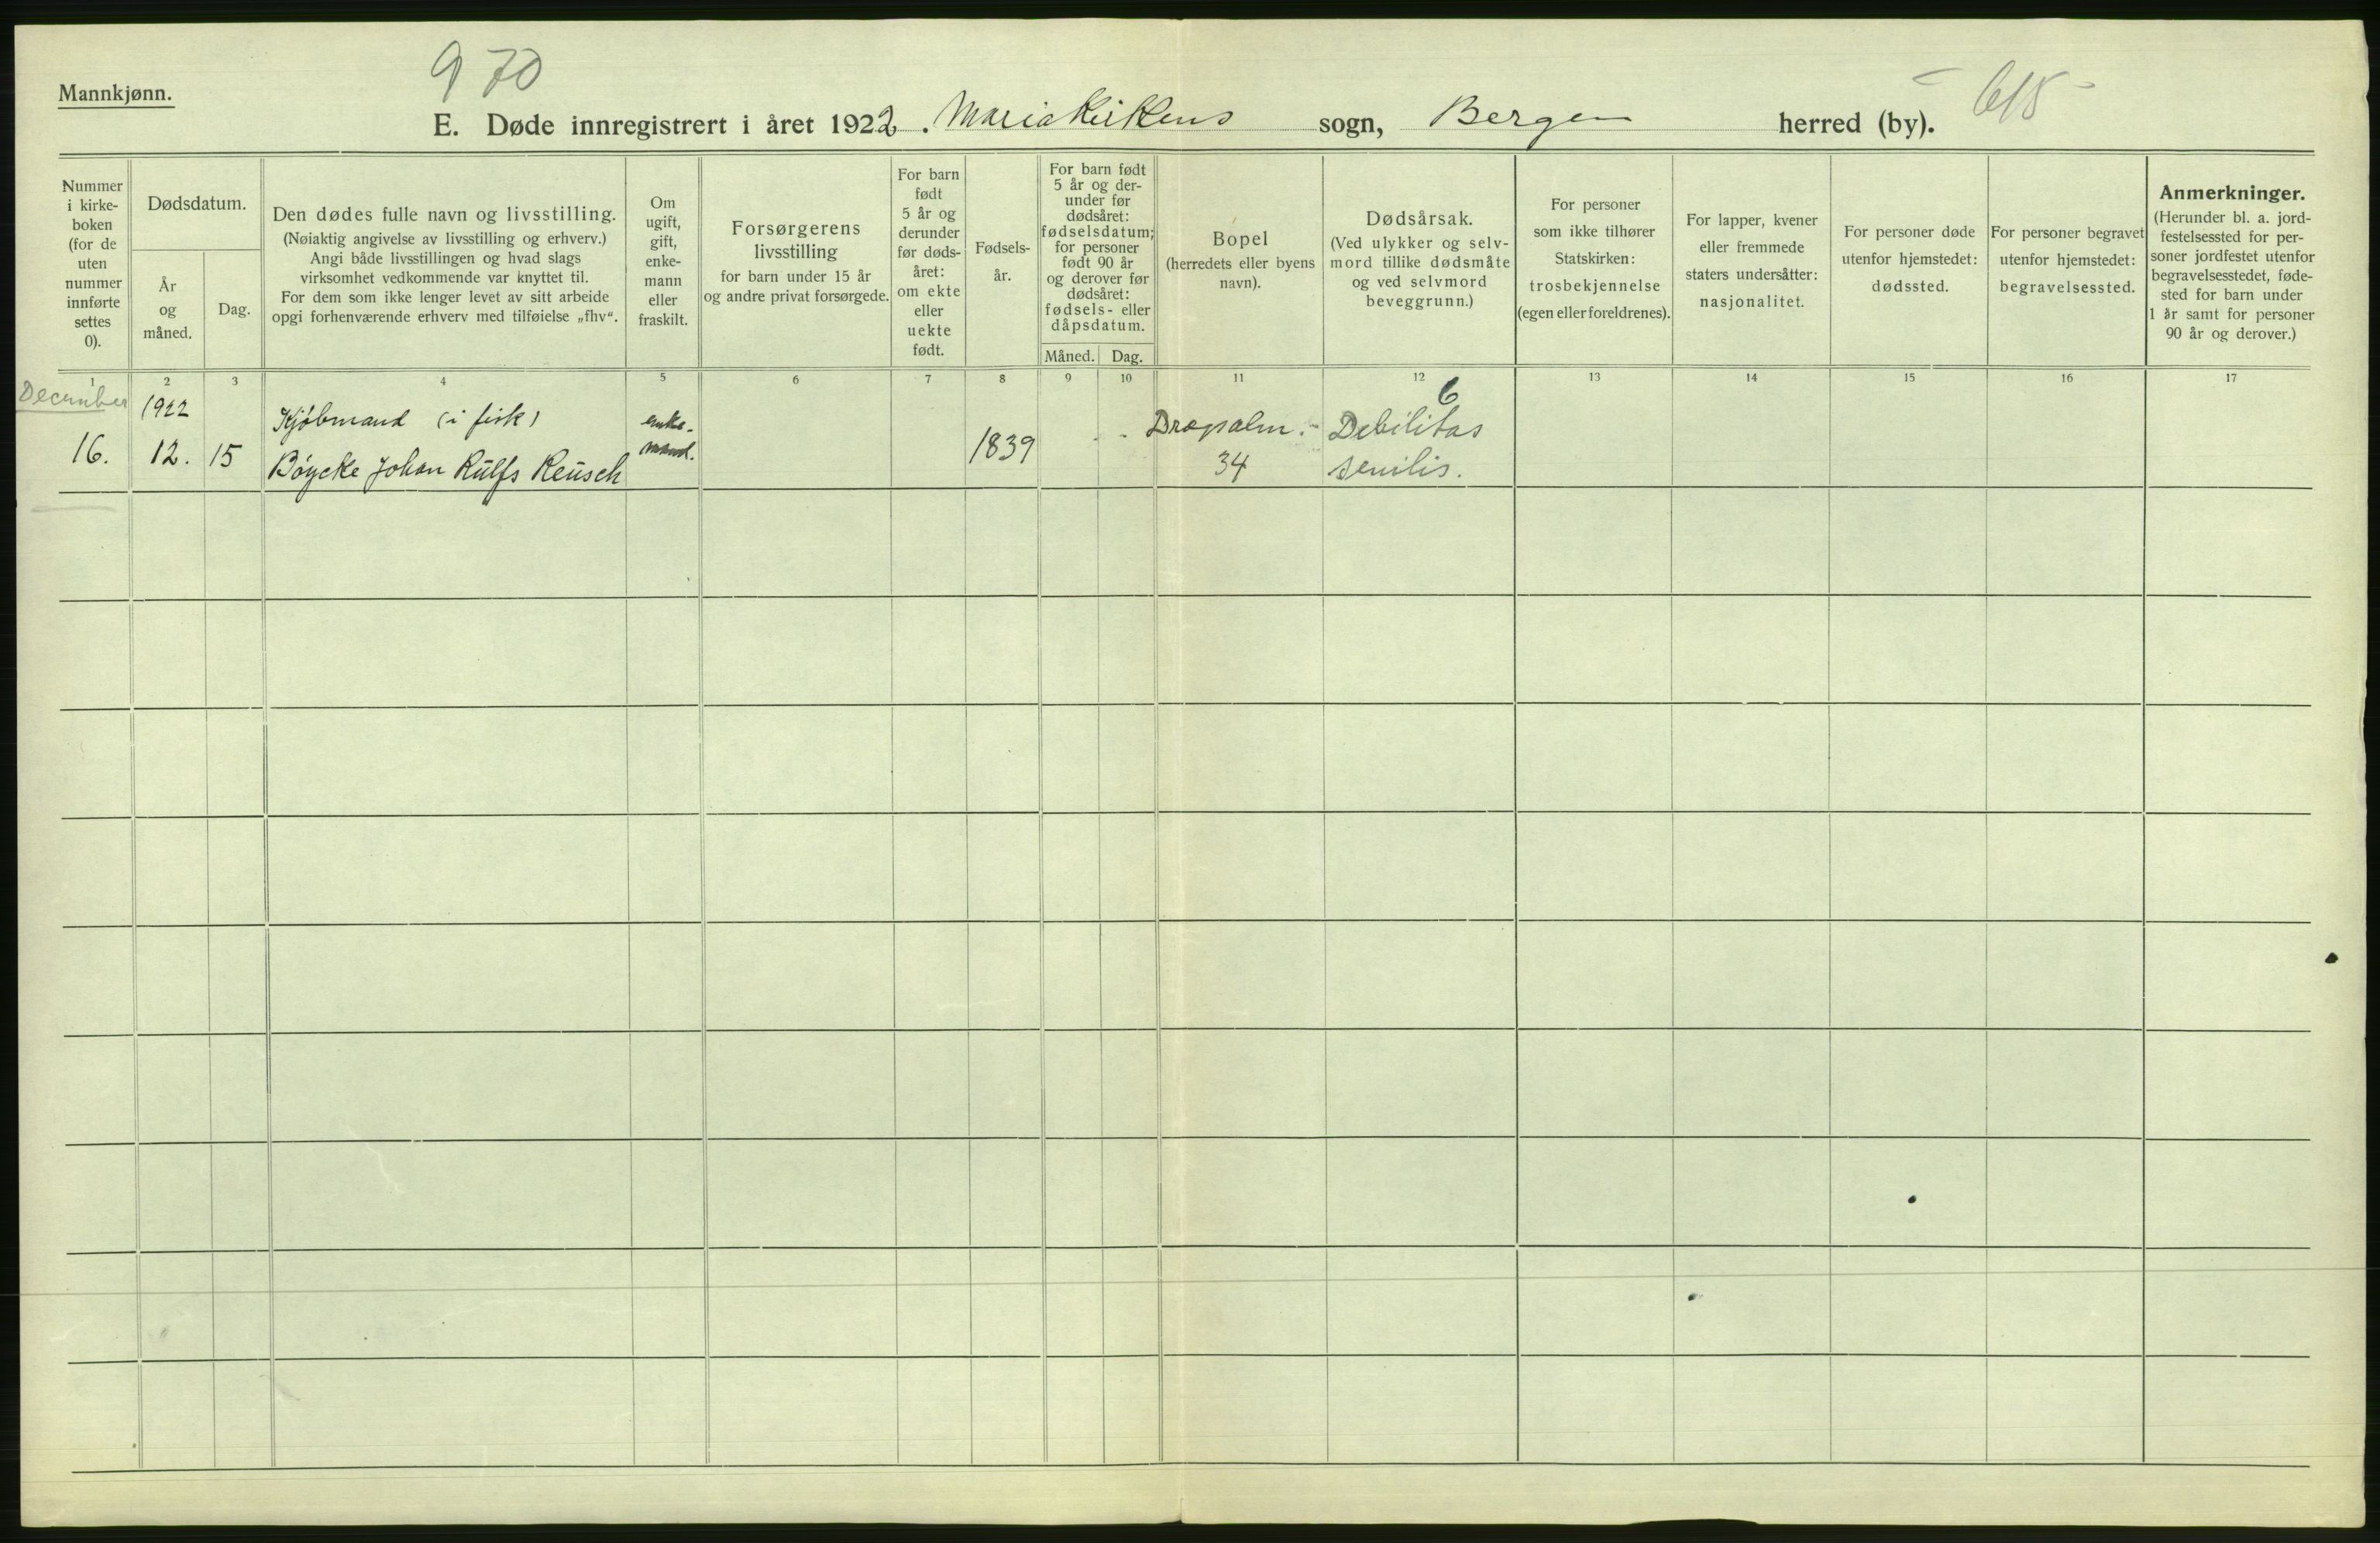 Mannkjønn.
970
615
E. Døde innregistrert i året 1922. Mariakirkens sogn, Bergen herred (by).
Nummer
i kirke-
boken
(for de
uten
nummer
innførte
settes
0).
Dødsdatum.
År
og
måned.
Dag.
Den dødes fulle navn og livsstilling.
(Nøiaktig angivelse av livsstilling og erhverv.)
Angi både livsstillingen og hvad slags
virksomhet vedkommende var knyttet til.
For dem som ikke lenger levet av sitt arbeide
opgi forhenværende erhverv med tilføielse „fhv“.
Om
ugift,
gift,
enke-
mann
eller
fraskilt.
Forsørgerens
livsstilling
for barn under 15 år
og andre privat forsørgede.
For barn
født
5 år og
derunder
før døds-
året:
om ekte
eller
uekte
født.
Fødsels-
år.
For barn født
5 år og der-
under før
dødsåret:
fødselsdatum;
for personer
født 90 år
og derover før
dødsåret:
fødsels- eller
dåpsdatum.
Måned. Dag.
Bopel
(herredets eller byens
navn).
Dødsårsak.
(Ved ulykker og selv-
mord tillike dødsmåte
og ved selvmord
beveggrunn.)
For personer
som ikke tilhører
Statskirken:
trosbekjennelse
(egen eller foreldrenes).
For lapper, kvener
eller fremmede
staters undersåtter:
nasjonalitet.
For personer døde
utenfor hjemstedet:
dødssted.
For personer begravet
utenfor hjemstedet:
begravelsessted.
Anmerkninger.
(Herunder bl. a. jord-
festelsessted for per-
soner jordfestet utenfor
begravelsesstedet, føde-
sted for barn under
1 år samt for personer
90 år og derover.)
1 2 3 4 5 6 7 8 9 10 11 12 13 14 15 16 17
December 1922 Kjöbmand (i fisk) enke- Debilitas 6
16. 12. 15 Böycke Johan Rulfs Reusch mand. 1839 34 senilis.